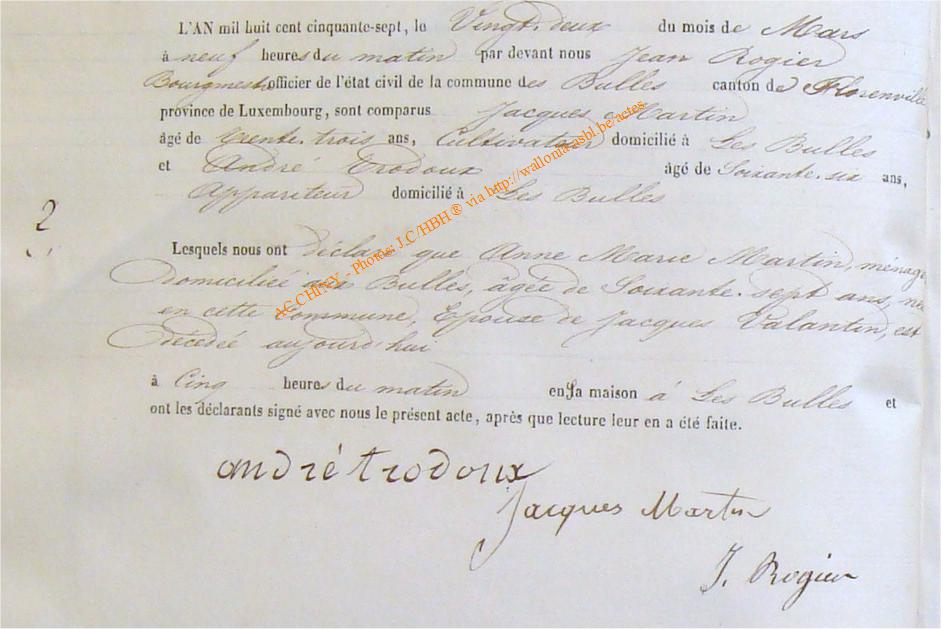 L'AN mil huit cent cinquante-sept, le Vingt-deux du mois de Mars
à neuf heures du matin par devant nous Jean Rogier
Bourgmestre officier de l'état civil de la commune des Bulles canton de Florenville
province de Luxembourg, sont comparus Jacques Martin
âgé de trente-trois ans, Cultivateur domicilié à Les Bulles
et André Trodoux âgé de Soixante-six ans,
Appariteur domicilié à Les Bulles
2
Lesquels nous ont déclaré que Anne Marie Martin, ménagè
domiciliée aux Bulles, âgée de Soixante-sept ans, née
en cette Commune, Epouse de Jacques Valantin, est
décédée aujourd'hui
à Cinq heures du matin en sa maison à Les Bulles et
ont les déclarants signé avec nous le présent acte, après que lecture leur en a été faite.
andré trodoux
Jacques Martin
J. Rogier
AC CHINY - Photos: J.C/HBH® via http://wallonia.asbl.be/actes